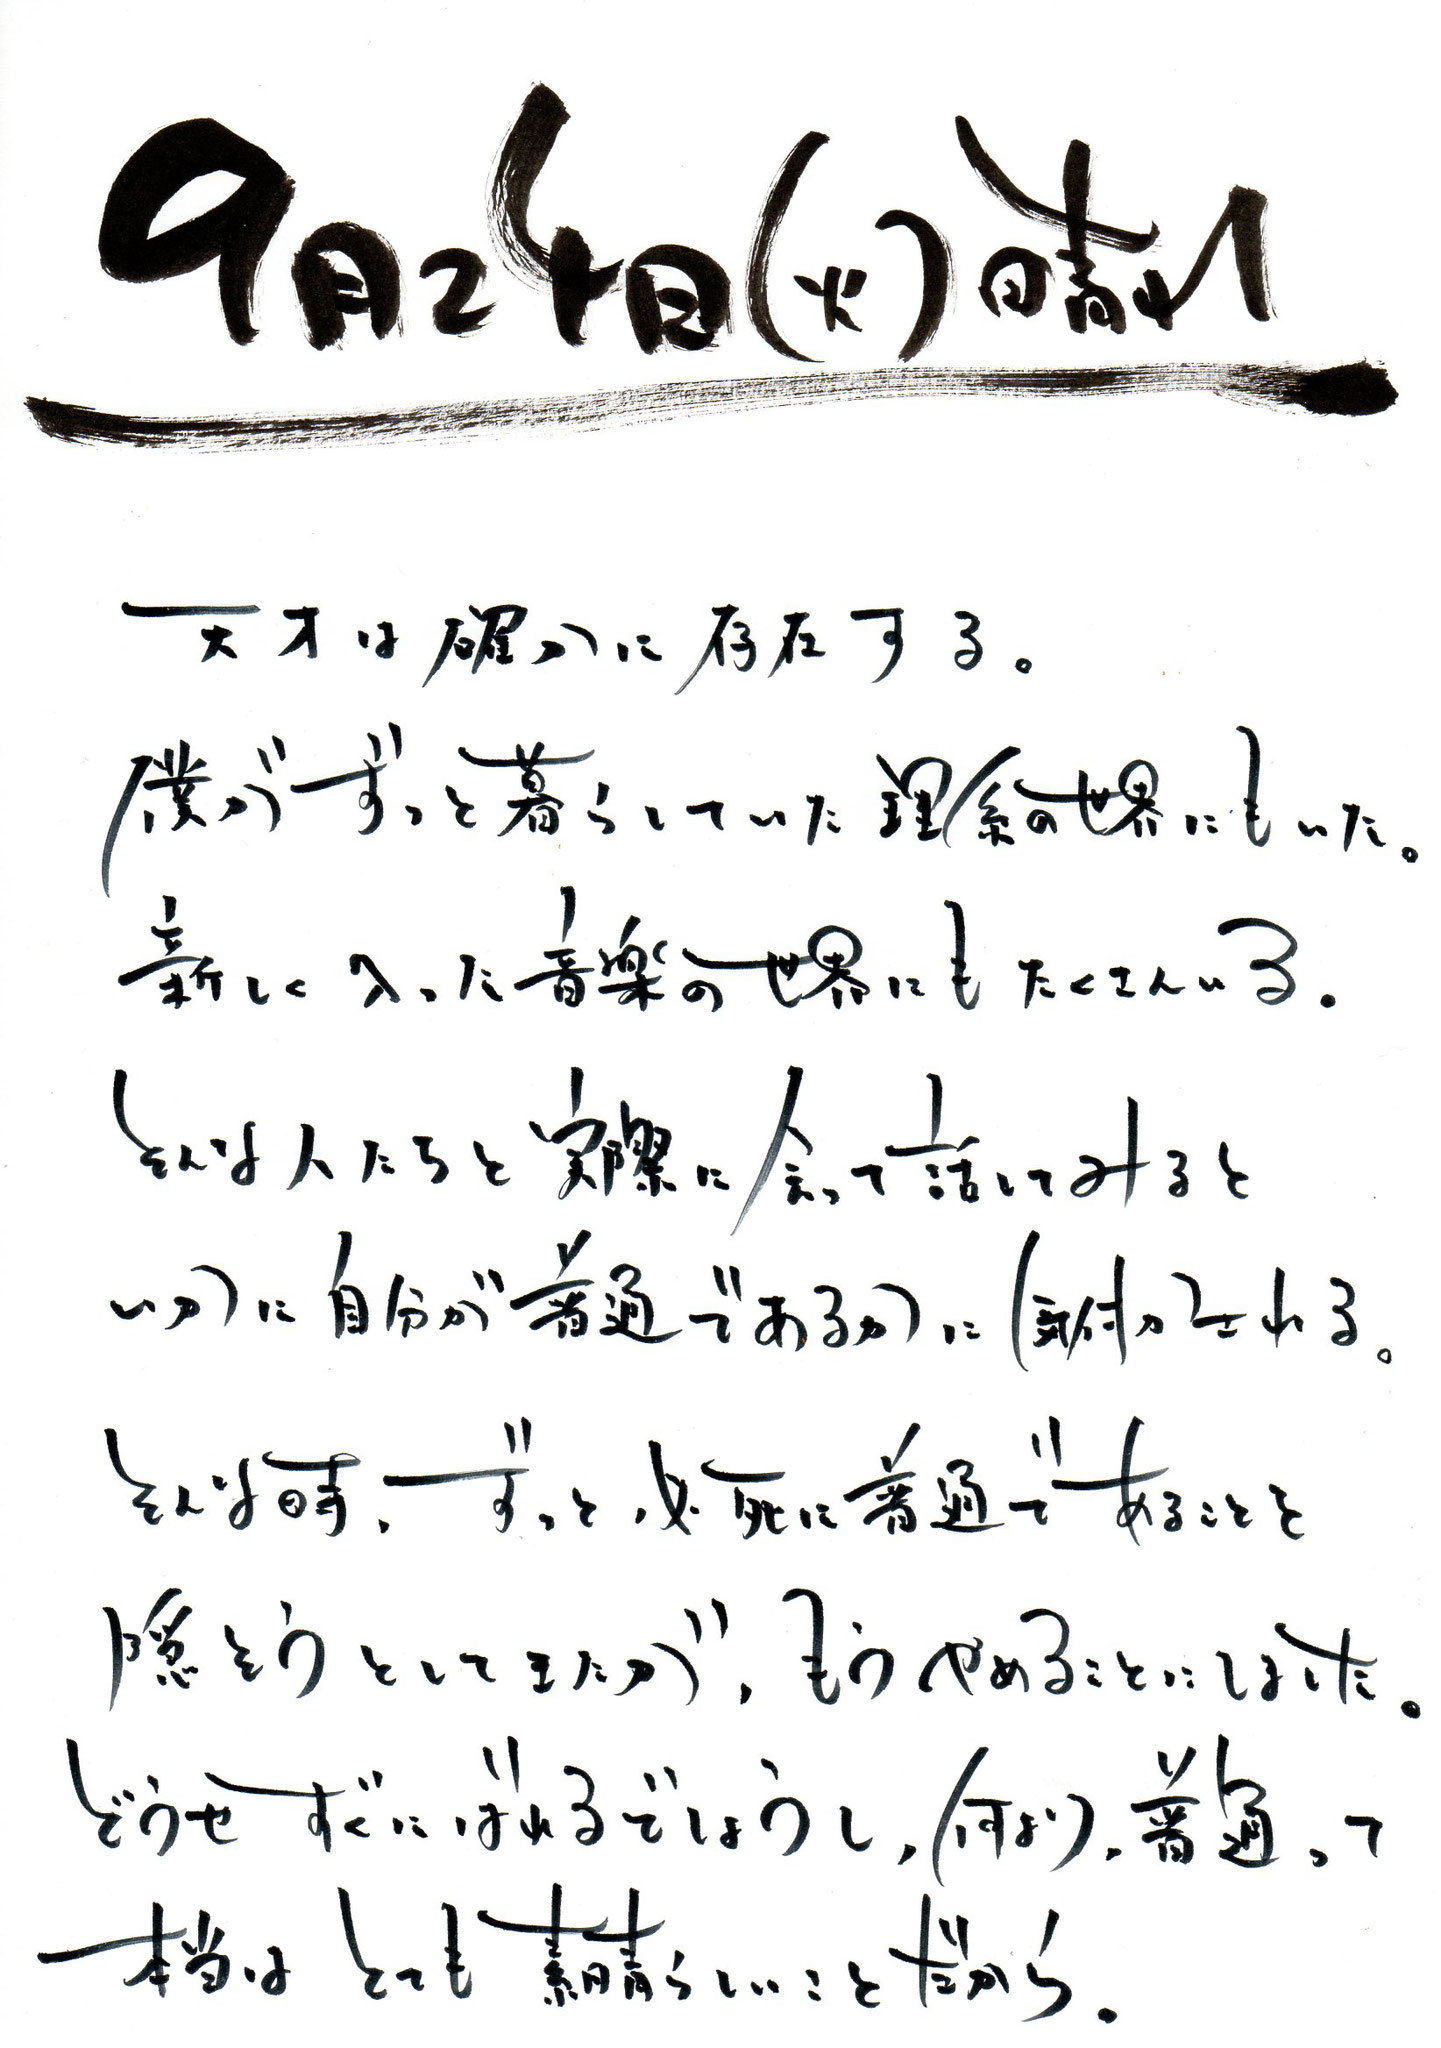 9月24日(火)晴れ
天才は確かに存在する。
僕がずっと暮らしていた理系の世界にもいた。
新しく入った音楽の世界にもたくさんいる。
そんな人たちと実際に会って話してみると
いかに自分が普通であるかに気付かされる。
そんな時、ずっと必死に普通であることを
隠そうとしてきたが、もうやめることにしました。
どうせすぐにばれるでしょうし、何より、普通って
本当はとても素晴らしいことだから。